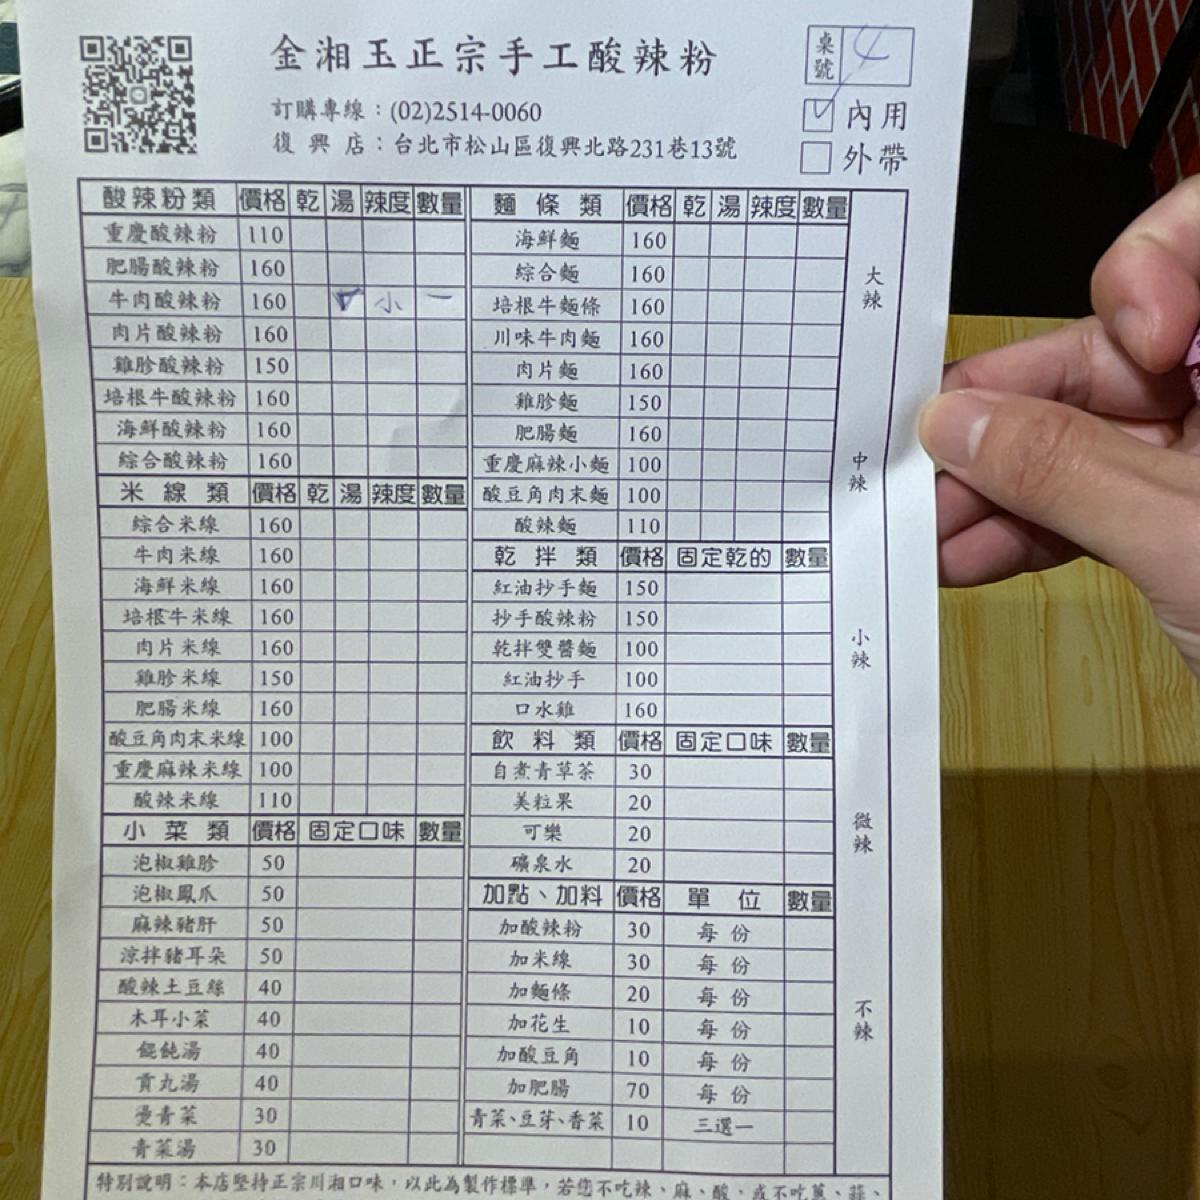 金湘玉正宗手工酸辣粉
訂購專線：(02)2514-0060
復興店：台北市松山區復興北路231巷13號
桌號 4
內用
外帶
酸辣粉類 價格 乾 湯 辣度 數量
重慶酸辣粉 110
肥腸酸辣粉 160
牛肉酸辣粉 160 小 一
肉片酸辣粉 160
雞胗酸辣粉 150
培根牛酸辣粉 160
海鮮酸辣粉 160
綜合酸辣粉 160
米線類 價格 乾 湯 辣度 數量
綜合米線 160
牛肉米線 160
海鮮米線 160
培根牛米線 160
肉片米線 160
雞胗米線 150
肥腸米線 160
酸豆角肉末米線 100
重慶麻辣米線 100
酸辣米線 110
小菜類 價格 固定口味 數量
泡椒雞胗 50
泡椒鳳爪 50
麻辣豬肝 50
涼拌豬耳朵 50
酸辣土豆絲 40
木耳小菜 40
餛飩湯 40
貢丸湯 40
燙青菜 30
青菜湯 30
麵條類 價格 乾 湯 辣度 數量
海鮮麵 160
綜合麵 160
培根牛麵條 160
川味牛肉麵 160
肉片麵 160
雞胗麵 150
肥腸麵 160
重慶麻辣小麵 100
酸豆角肉末麵 100
酸辣麵 110
乾拌類 價格 固定乾的 數量
紅油抄手麵 150
抄手酸辣粉 150
乾拌雙醬麵 100
紅油抄手 100
口水雞 160
飲料類 價格 固定口味 數量
自煮青草茶 30
美粒果 20
可樂 20
礦泉水 20
加點、加料 價格 單位 數量
加酸辣粉 30 每份
加米線 30 每份
加麵條 20 每份
加花生 10 每份
加酸豆角 10 每份
加肥腸 70 每份
青菜、豆芽、香菜 10 三選一
大辣
中辣
小辣
微辣
不辣
特別說明：本店堅持正宗川湘口味，以此為製作標準，若您不吃辣、麻、酸、或不吃蔥、蒜、